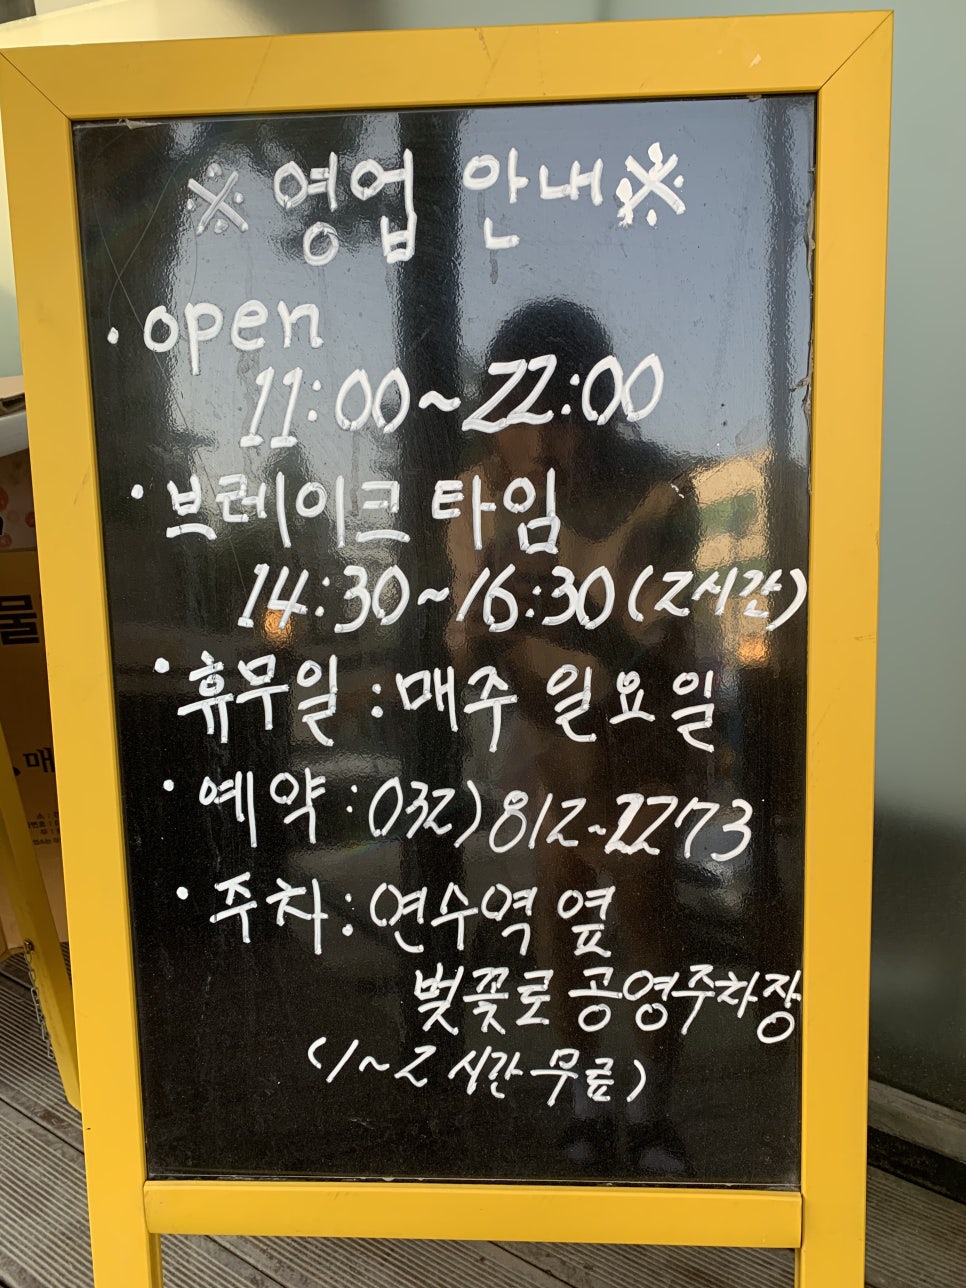 ※ 영업 안내 ※
· open
11:00~22:00
· 브레이크 타임
14:30~16:30 (2시간)
· 휴무일 : 매주 일요일
· 예약 : 032) 812-2273
· 주차 : 연수역 옆
벚꽃로 공영주차장
(1~2 시간 무료)
물
매